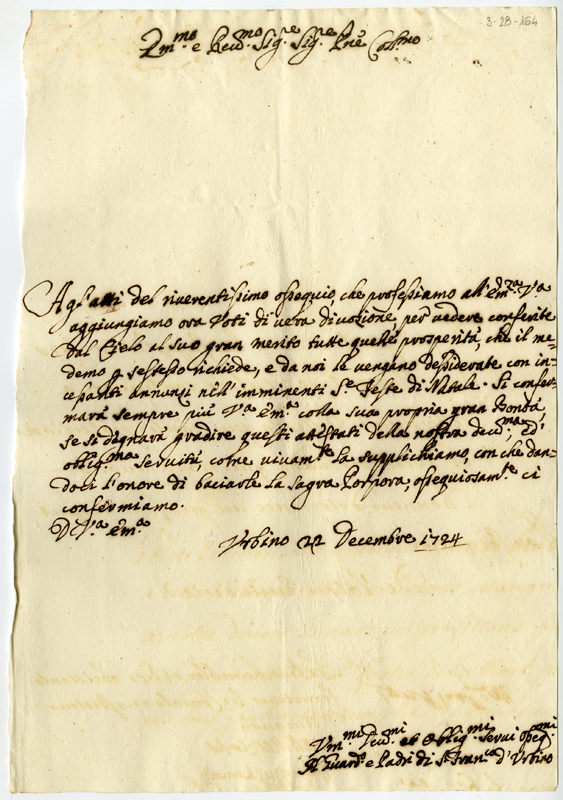 3-28-164
Em.mo e Rev.mo Sig.re Sig.re Pne Colmo
Agl'atti del riverentissimo ossequio, che professiamo all'Em.za V.a
aggiungiamo ora Voti di vera divozione per vedere conferite
dal Cielo al suo gran merito tutte quelle prosperità, che il me-
demo p sestesso richiede, e da noi le vengano dessiderate con in-
cessanti annunzi nell'imminenti S.te Feste di Natale. Si confer-
marà sempre più V.a Em.a colla sua propria gran Bontà,
se si degnarà gradire questi attestati della nostra dev.ma, ed
oblig.ma servitù, come vivam.te la supplichiamo, con che dan-
doci l'onore di baciarle la sagra Porpora, ossequiosam.te ci
confermiamo.
D V.a Em.a
Urbino 22 Decembre 1724
Um.mi Dev.mi et Oblig.mi servi osseq.mi
Il Guard.o e Padri di S. Fran.co d'Urbino